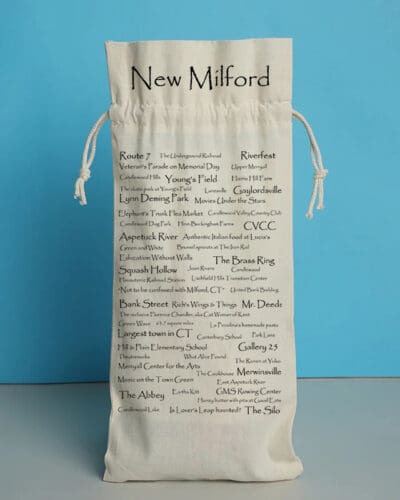 New Milford
Route 7 The Underground Railroad Riverfest
Veteran's Parade on Memorial Day Upper Merryall
Candlewood Hills Young's Field Harris Hill Farm
The skate park at Young's Field Lanesville Gaylordsville
Lynn Deming Park Movies Under the Stars
Elephant's Trunk Flea Market Candlewood Valley Country Club
Candlewood Dog Park Hunt Buckingham Farms CVCC
Aspetuck River Authentic Italian food at Lucia's
Green and White Brussel sprouts at The Iron Rail
Education Without Walls The Brass Ring
Squash Hollow Joan Rivers Candlewood
Housatonic Railroad Station Litchfield Hills Transition Center
"Not to be confused with Milford, CT" United Bank Building
Bank Street Rich's Wings & Things Mr. Deeds
The reclusive Florence Chandler, aka Cat Woman of Kent
Green Wave 63.7 square miles La Pecolina's homemade pasta
Largest town in CT Canterbury School Park Lane
Hill & Plain Elementary School Gallery 25
Theatreworks What Alice Found The Raven at Yoko
Merryall Center for the Arts The Cookhouse Merwinsville
Music on the Town Green East Aspetuck River
The Abbey Eartha Kitt GMS Rowing Center
Honey butter with pita at Good Eats
Candlewood Lake Is Lover's Leap haunted? The Silo